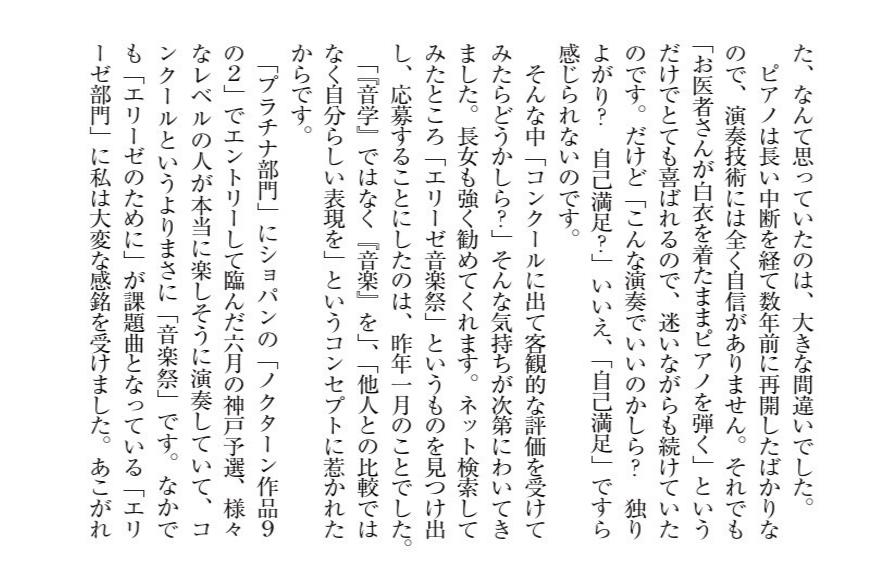 た、なんて思っていたのは、大きな間違いでした。
　ピアノは長い中断を経て数年前に再開したばかりな
ので、演奏技術には全く自信がありません。それでも
「お医者さんが白衣を着たままピアノを弾く」という
だけでとても喜ばれるので、迷いながらも続けていた
のです。だけど「こんな演奏でいいのかしら？　独り
よがり？　自己満足？」いいえ、「自己満足」ですら
感じられないのです。
　そんな中「コンクールに出て客観的な評価を受けて
みたらどうかしら？」そんな気持ちが次第にわいてき
ました。長女も強く勧めてくれます。ネット検索して
みたところ「エリーゼ音楽祭」というものを見つけ出
し、応募することにしたのは、昨年一月のことでした。
　「『音学』ではなく『音楽』を」、「他人との比較では
なく自分らしい表現を」というコンセプトに惹かれた
からです。
　「プラチナ部門」にショパンの「ノクターン作品９
の２」でエントリーして臨んだ六月の神戸予選、様々
なレベルの人が本当に楽しそうに演奏していて、コ
ンクールというよりまさに「音楽祭」です。なかで
も「エリーゼのために」が課題曲となっている「エリ
ーゼ部門」に私は大変な感銘を受けました。あこがれ